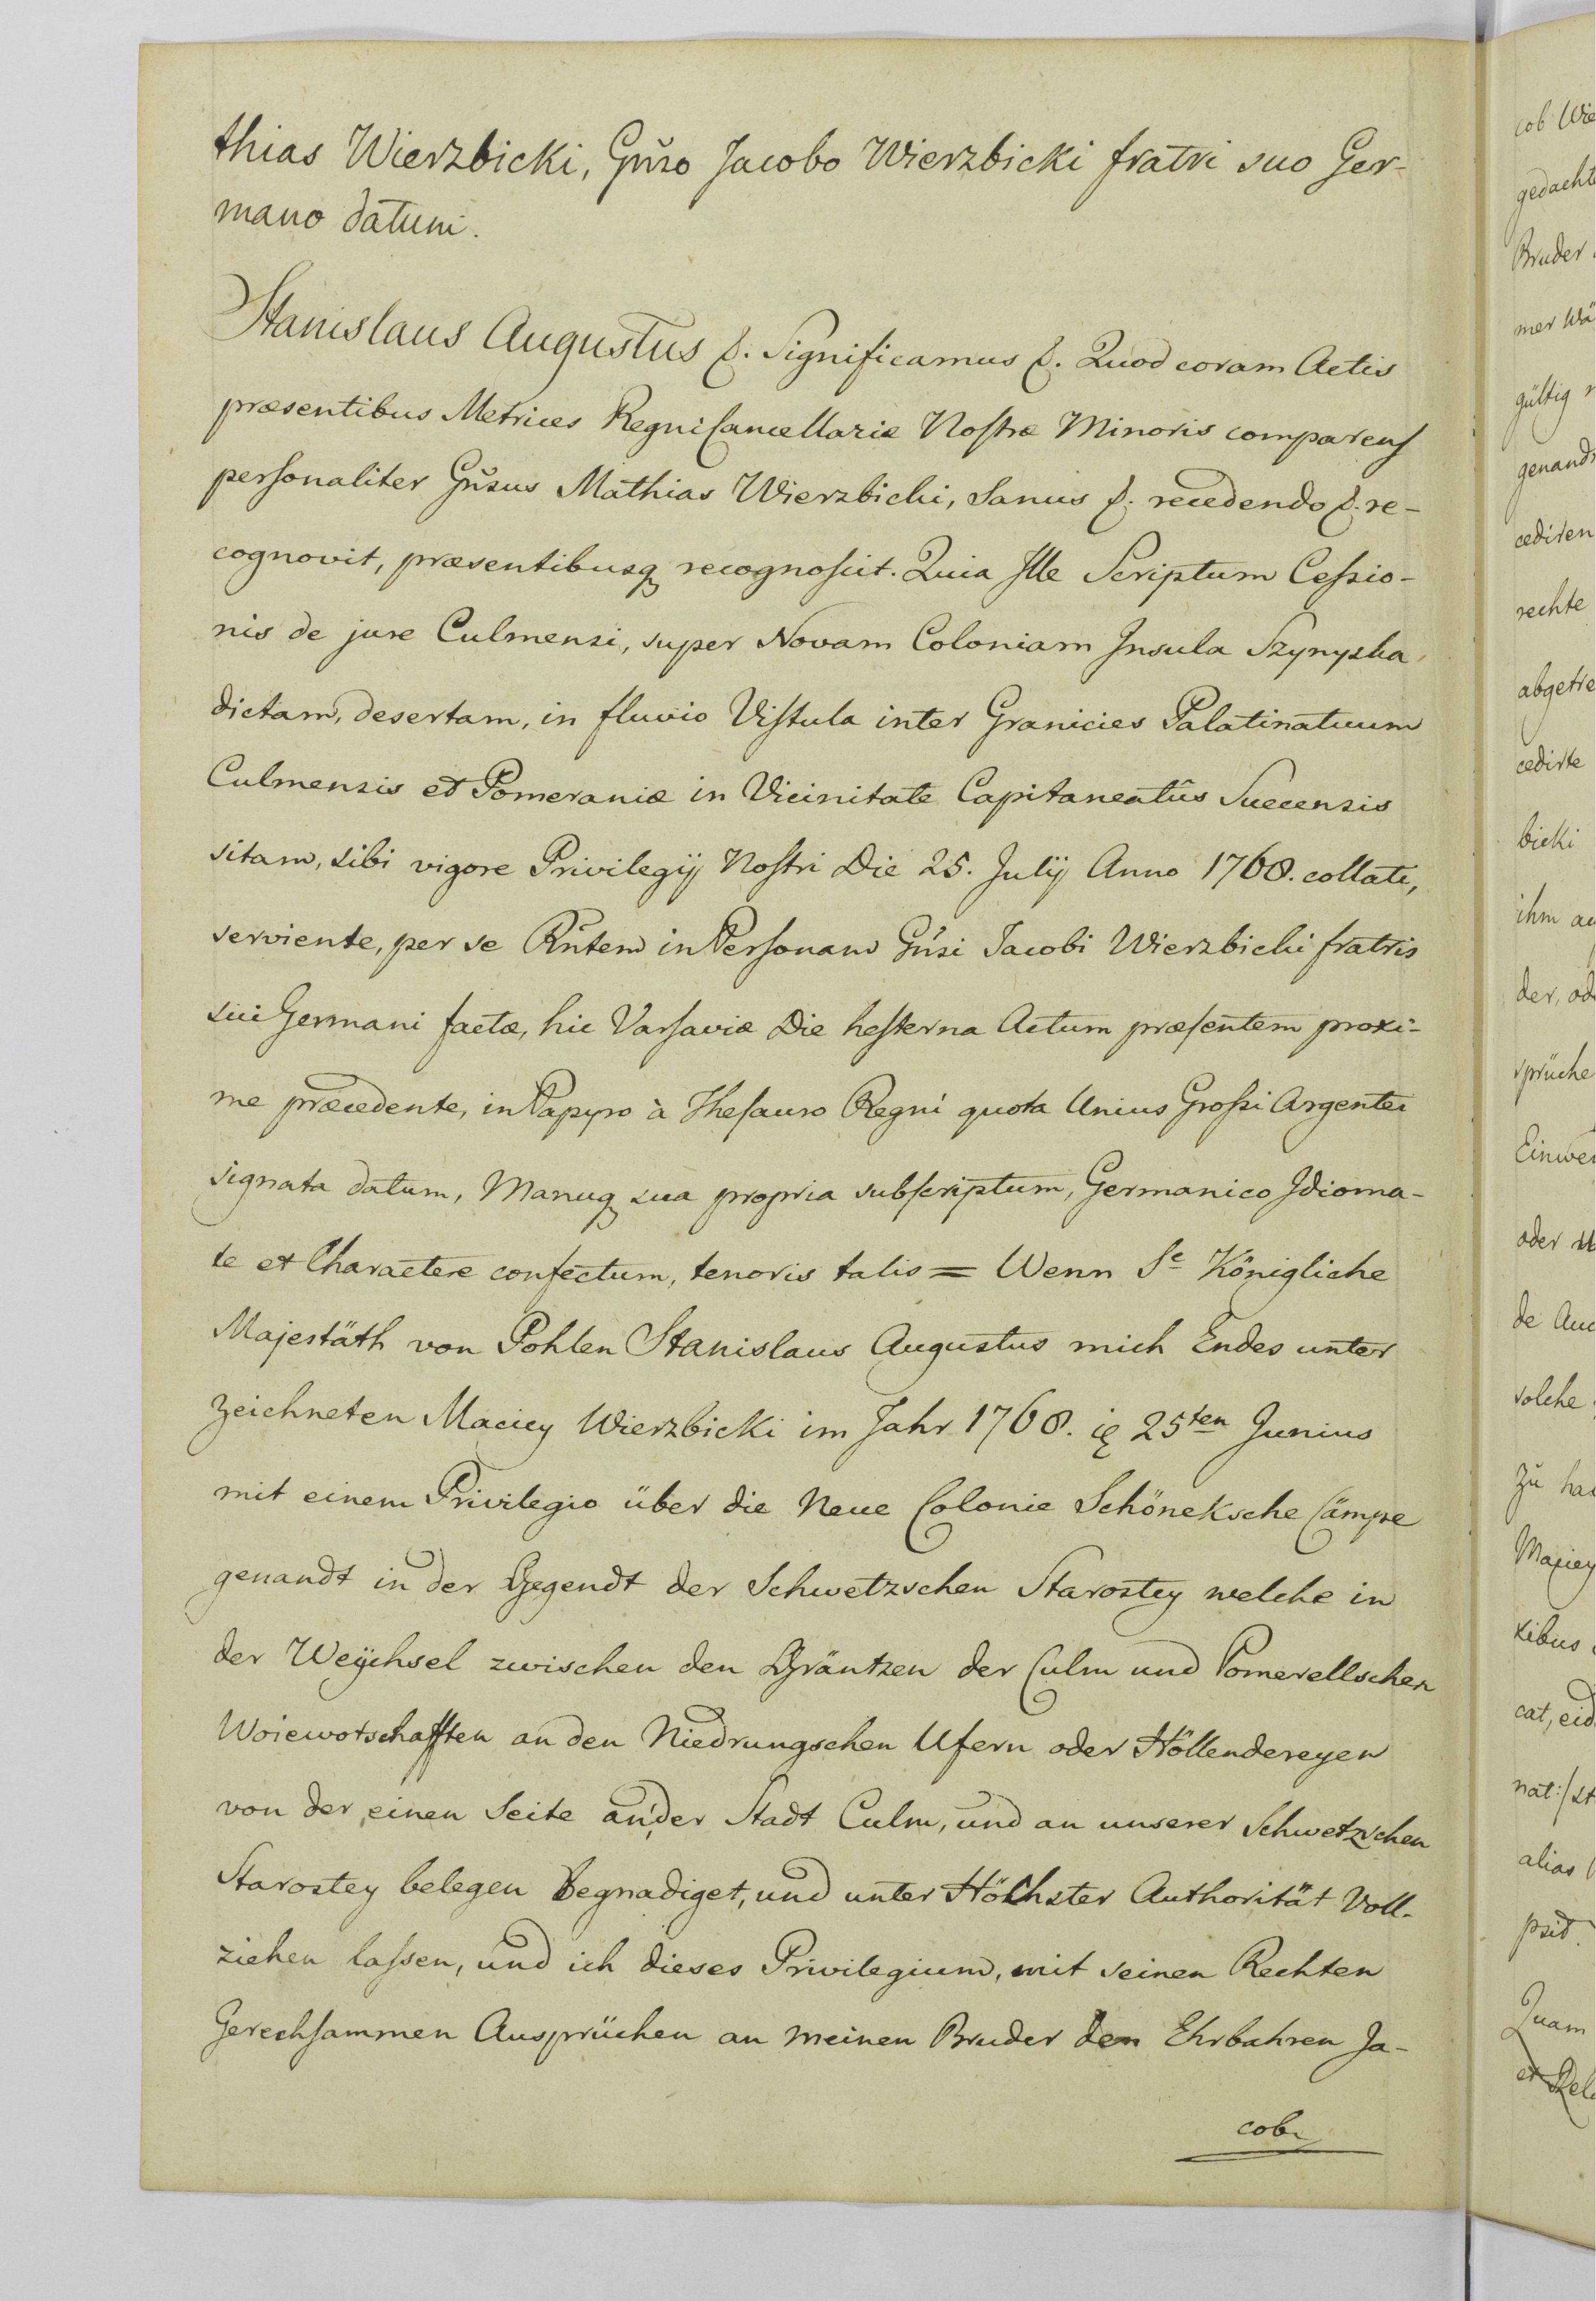 thias Wierzbicki, Gn̄so Jacobo Wierzbicki fratri suo Ger-
mano datum.
Stanislaus Augustus &. Significamus &. Quod coram Actis
præsentibus Metrices Regni Cancellariæ Nostræ Minoris comparens
personaliter Gn̄sus Mathias Wierzbicki, Sanus &. recedendo &. re-
cognovit, præsentibusq recognoscit. Quia Ille Scriptum Cessio-
nis de jure Culmensi, super Novam Coloniam Insula Szynyska
dictam, desertam, in fluvio Vistula inter Granicies Palatinatuum
Culmensis et Pomeraniæ in Vicinitate Capitaneatûs Suecensis
sitam, sibi vigore Privilegij Nostri Die 25. Julij Anno 1768. collate,
serviente, per se Rn̄tem in Personam Gn̄si Jacobi Wierzbicki fratris
sui Germani factæ, hic Varsaviæ Die hesterna Actum præsentem proxi-
me præcedente, in Papyro à Thesauro Regni quota Unius Grossi Argentei
signata datum, Manuq sua propria subscriptum, Germanico Idioma-
te et Charactere confectum, tenoris talis = Wenn Se Königliche
Majestäth von Pohlen Stanislaus Augustus mich Endes unter
zeichneten Maciey Wierzbicki im Jahr 1768. 25ten Junius
mit einem Privilegio über die Neue Colonie Schöneksche Cämpe
genandt in der Gegendt der Schwetzschen Starostey welche in
der Weÿchsel zwischen den Gräntzen der Culm und Pomerellschen
Woiewotschafften an den Niedrungschen Ufern oder Höllendereyen
von der einen Seite an der Stadt Culm, und an unserer Schwetzschen
Starostey belegen Begnadiget, und unter Höchster Authorität Voll-
ziehen lassen, und ich dieses Privilegium, mit seinen Rechten
Gerechsammen Ansprüchen an meinen Bruder den Ehrbahren Ja-
cob
cob Wie
gedacht
Bruder
mer Wä
gültig
genand
cediren
rechte
abgetre
cedirte
bicki
ihm au
der, od
sprüche
Einwen
oder
de Auc
solche
zu ha
Maciey
xibus
cat, eid
nat:/st
alias
psit
Quam
et Rel